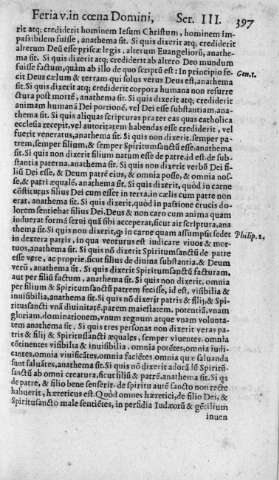 Feria v. in cœna Domini, Ser. III. 397
rit atq; crediderit hominem Iesum Christum, hominem im-
passibilem fuisse, anathema sit. Si quis dixerit atq; crediderit
alterum Deũ esse priscæ legis, alterum Euangeliorũ, anathe-
ma sit. Si quis dixerit atq; crediderit ab altero Deo mundum
fuisse factum, quàm ab illo de quo scriptũ est: In principio fe- Gen. 1.
cit Deus cælum & terram qui solus verus Deus est, anathema
sit. Si quis dixerit atq; crediderit corpora humana non resurre
ctura post mortẽ, anathema sit. Si quis dixerit atq; crediderit
animam humanã Dei portionẽ, vel Dei esse substantiam. ana-
thema sit. Si quis aliquas scripturas præter eas quas catholica
ecclesia recepit, vel autoritatem habendas esse crediderit, vel
fuerit veneratus, anathema sit. Si quis non dixerit semper pa-
trem, semper filium, & semper Spiritumsanctũ esse, anathema
sit. Si quis non dixerit filium natum esse de patre, id est, de sub-
stantia paterna, anathema sit. Si quis non dixerit verbũ Dei fi-
liũ Dei esse, & Deum patrẽ eius, & omnia posse, & omnia nos-
se, & patri æqualẽ, anathema sit. Si quis dixerit, quòd in carne
cõstitutus filius Dei cum esset in terra, in cælis cum patre non
erat, anathema sit. Si quis dixerit, quòd in passione crucis do-
lorem sentiebat filius Dei, Deus & non caro cum anima quam
induerat formã serui quã sibi acceperat, sicut ait scriptura, ana
thema sit. Si quis non dixerit, q̃ in carne quam assumpsit sedet Philip. 2.
in dextera patris, in qua venturus est iudicare viuos & mor-
tuos, anathema sit. Si quis nõ dixerit Spiritumsanctũ de patre
esse verè, ac propriè, sicut filius de diuina substantia, & Deum
verũ, anathema sit. Si quis dixerit Spiritumsanctũ facturam,
aut per filiũ factum, anathema sit. Si quis non dixerit, omnia
per filium & Spiritumsanctũ patrem fecisse, id est, visibilia &
inuisibilia, anathema sit. Si quis nõ dixerit patris & filij, & Spi-
ritussancti vnã diuinitatẽ, parem maiestatem, potentiã, vnam
gloriam, dominationem, vnum regnum atque vnam volunta-
tem anathema sit. Si quis tres personas non dixerit veras pa-
tris & filij & Spiritussancti æquales, semper viuentes, omnia
cõtinentes visibilia & inuisibilia, omnia potẽtes, omnia iudi-
cantes, omnia viuificãtes, omnia faciẽtes omnia quæ saluanda
sunt saluãtes, anathema sit. Si quis nõ dixerit adorãdũ Spiritũ-
sanctũ ab omni creatura, sicut filiũ & patrẽ, anathema sit. Si qs
de patre, & filio bene senserit, de spiritu autẽ sancto non rectè
habuerit, hæreticus est. Quòd omnes hæretici, de filio Dei, &
Spiritusancto malè sentiẽtes, in perfidia Iudæorũ & gẽtilium
inuen